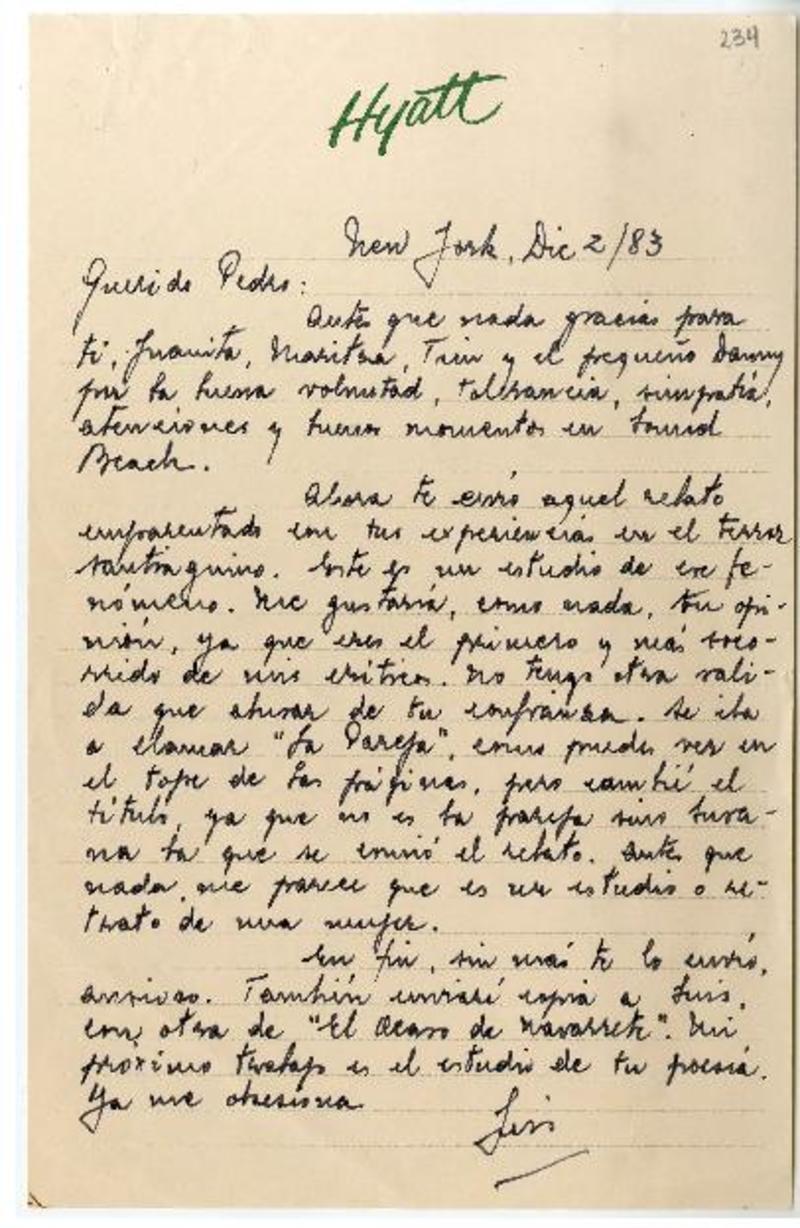 234
Hyatt
New York, Dic 2/83
Querido Pedro:
Antes que nada gracias para
ti, Juanita, Maritza, Tim y el pequeño Danny
por la buena voluntad, tolerancia, simpatía,
atenciones y buenos momentos en Sound
Beach.
Ahora te envío aquel relato
emparentado con tus experiencias en el terror
santiaguino. Este es un estudio de ese fe-
nómeno. Me gustaría, como nada, tu opi-
nión, ya que eres el primero y más soco-
rrido de mis críticos. No tengo otra sali-
da que abusar de tu confianza. Se iba
a llamar "La Pareja", como puedes ver en
el tope de las páginas, pero cambié el
título, ya que no es la pareja sino Susa-
na la que se comió el relato. Antes que
nada, me parece que es un estudio o re-
trato de una mujer.
En fin, sin más te lo envío,
ansioso. También enviaré copia a Luis,
con otra de "El Ocaso de Navarrete". Mi
próximo trabajo es el estudio de tu poesía.
Ya me obsesiona